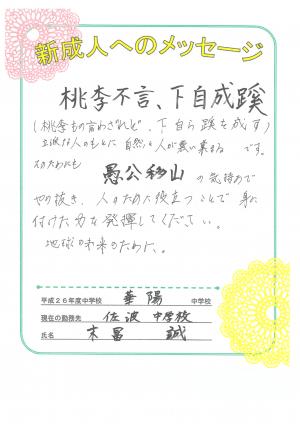 新成人へのメッセージ
桃李不言、下自成蹊
(桃李もの言わざれど、下自ら蹊を成す)
立派な人のもとに自然と人が集い集まる です。
そのためにも
愚公移山 の気持ちで
やり抜き、人のために役立つことで身に
付けた力を発揮してください。
地球の未来のために。
平成26年度中学校 華陽 中学校
現在の勤務先 佐波中学校
氏名 誠